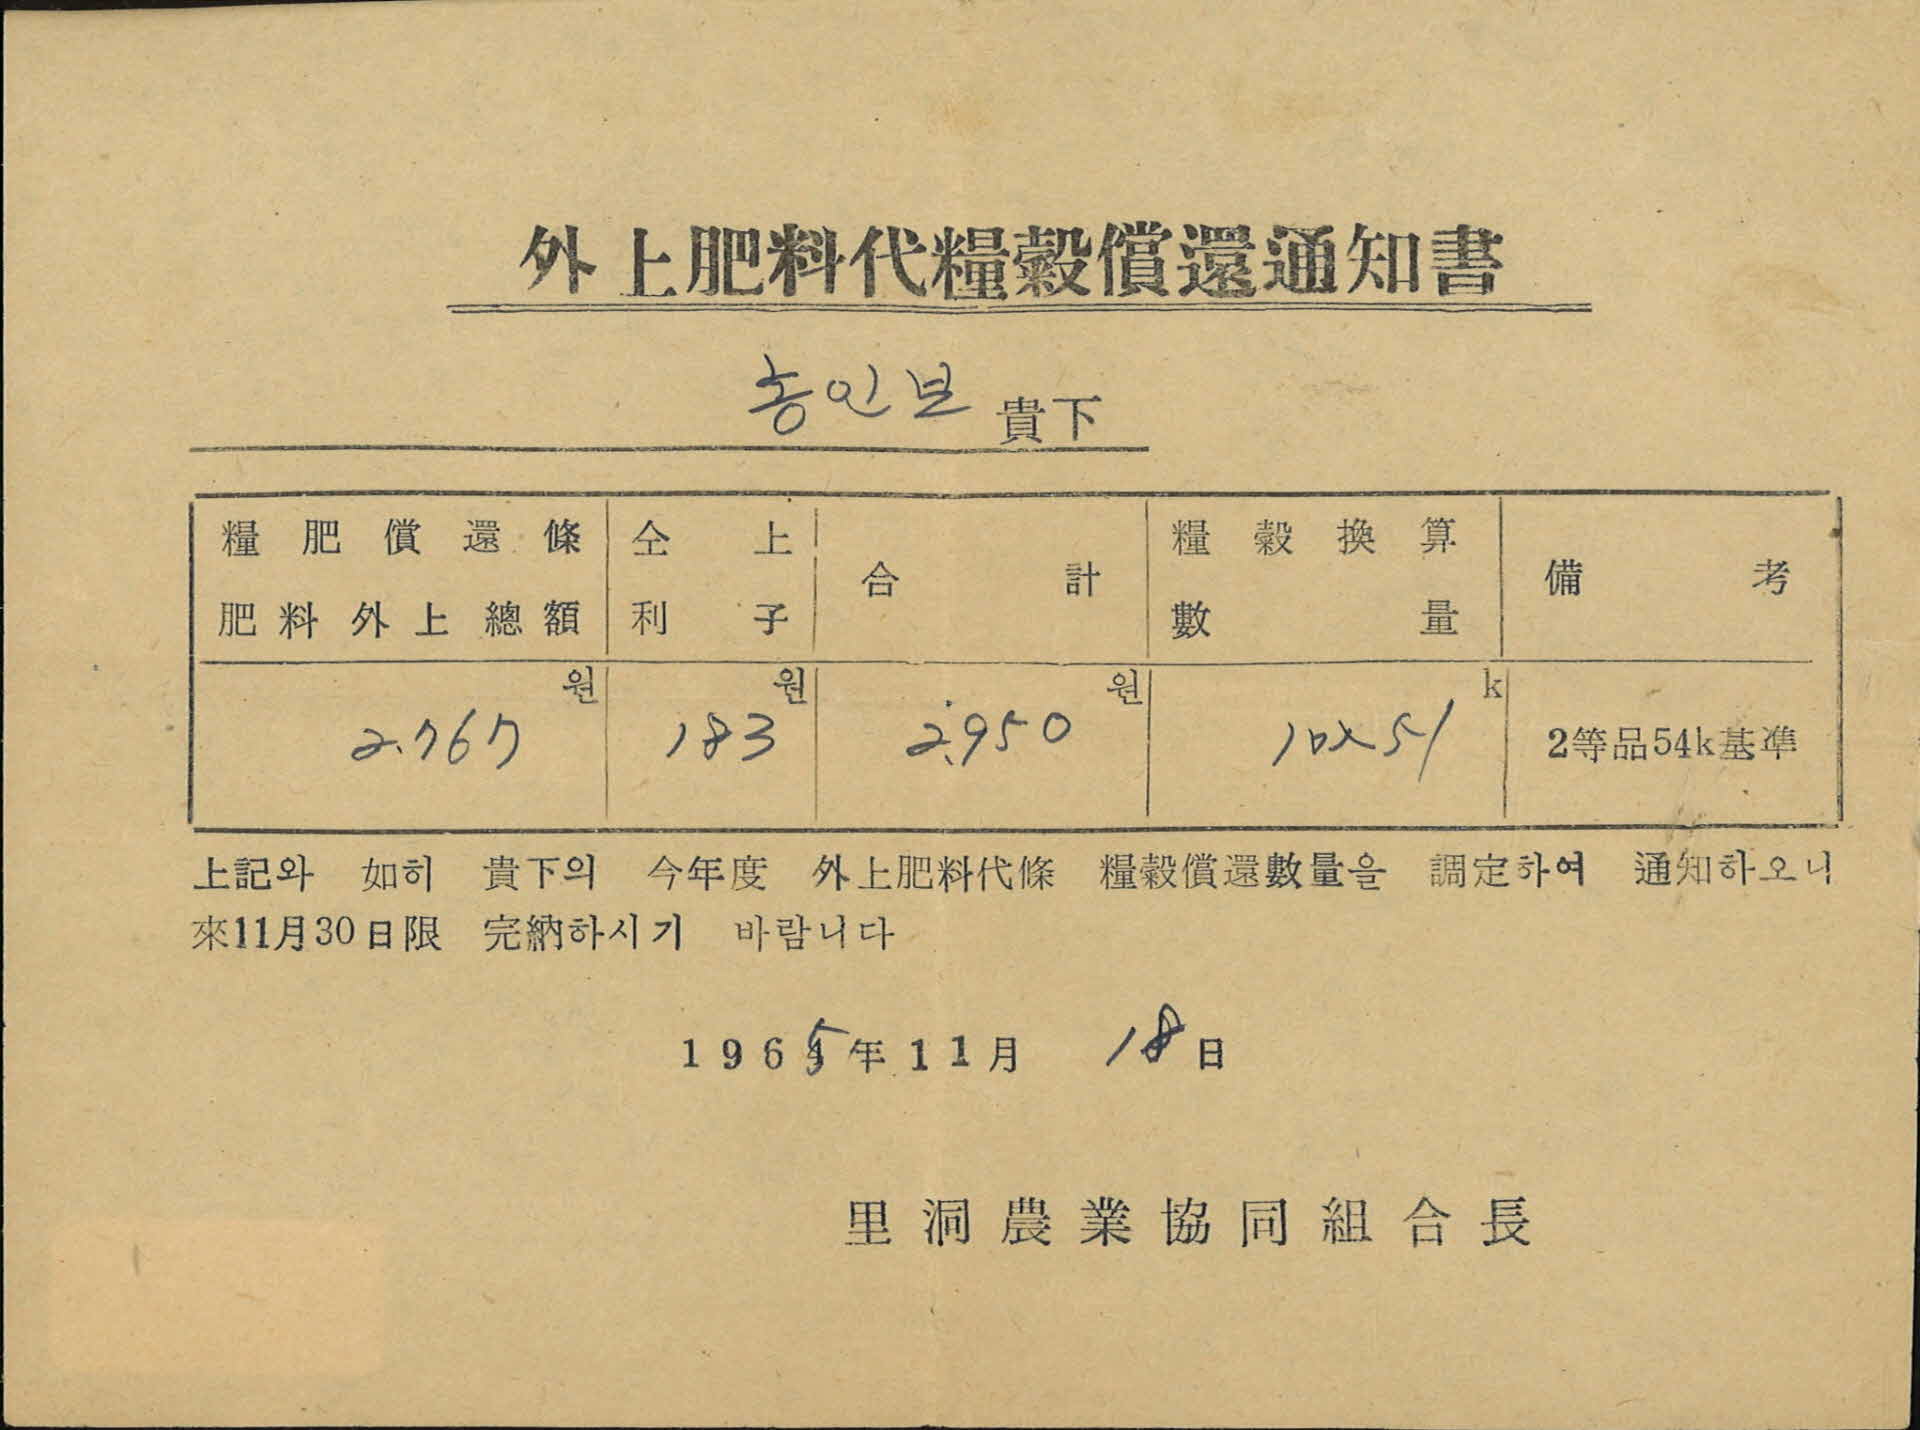 外上肥料代糧穀償還通知書
홍인표 貴下
糧肥償還條 肥料外上總額
仝上 利子
合計
糧穀換算 數量
備考
원 2.767
원 183
원 2.950
k
2等品54k基準
上記와 如히 貴下의 今年度 外上肥料代條 糧穀償還數量을 調定하여 通知하오니
來11月30日限 完納하시기 바랍니다
1965年11月 18日
里洞農業協同組合長